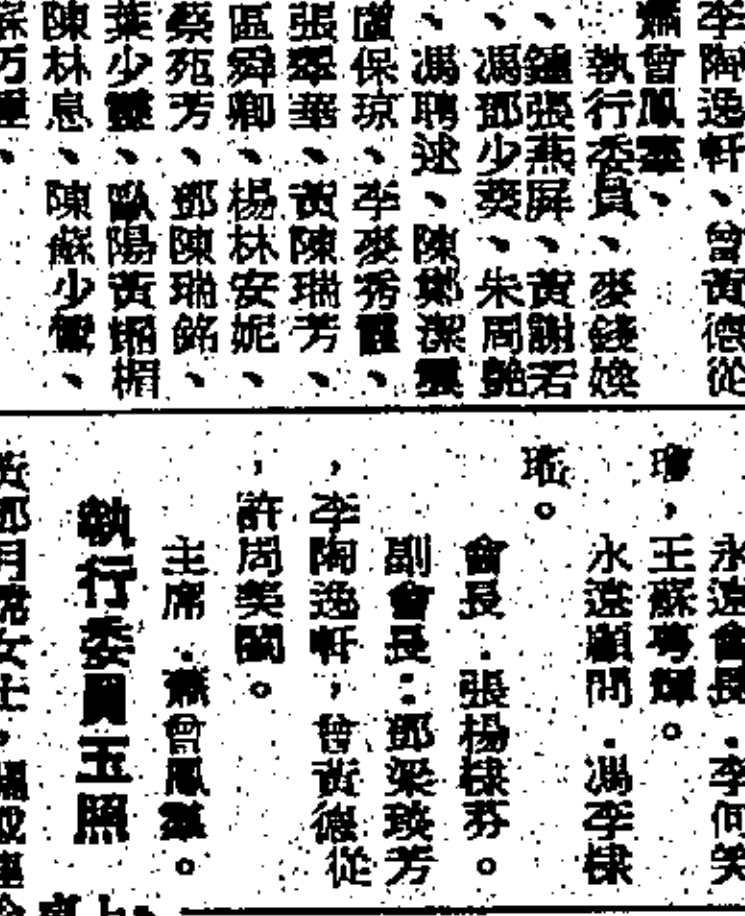 李陶逸軒、曾黃德從
蕭曾鳳羣、
執行委員、麥錢煥
、鍾張燕屏、黃謝若
、馮鄧少葵、朱周艷
、馮聘逑、陳鄭潔雲
盧保琼、李麥秀霞、
張翠華、黃陳瑞芳、
區舜卿、楊林安妮、
蔡苑芳、鄧陳瑞銘、
葉少、歐陽黃楣
陳林息、陳蘇少、
永遠會長．李何笑
，王蘇粵輝。
永遠顧問．馮李棣
瑤。
會長．張楊棣芬。
副會長：鄧梁瑛芳
，李陶逸軒，曾黃德從
，許周美蘭。
主席．蕭曾鳳羣。
執行委員玉照
黃鄧月霞女士，